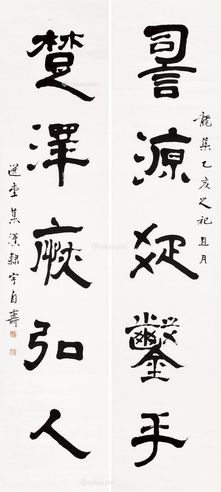 詞源疏鑿手
龍集乙亥之祀且月
楚澤弘人
選堂集漢隸字自壽